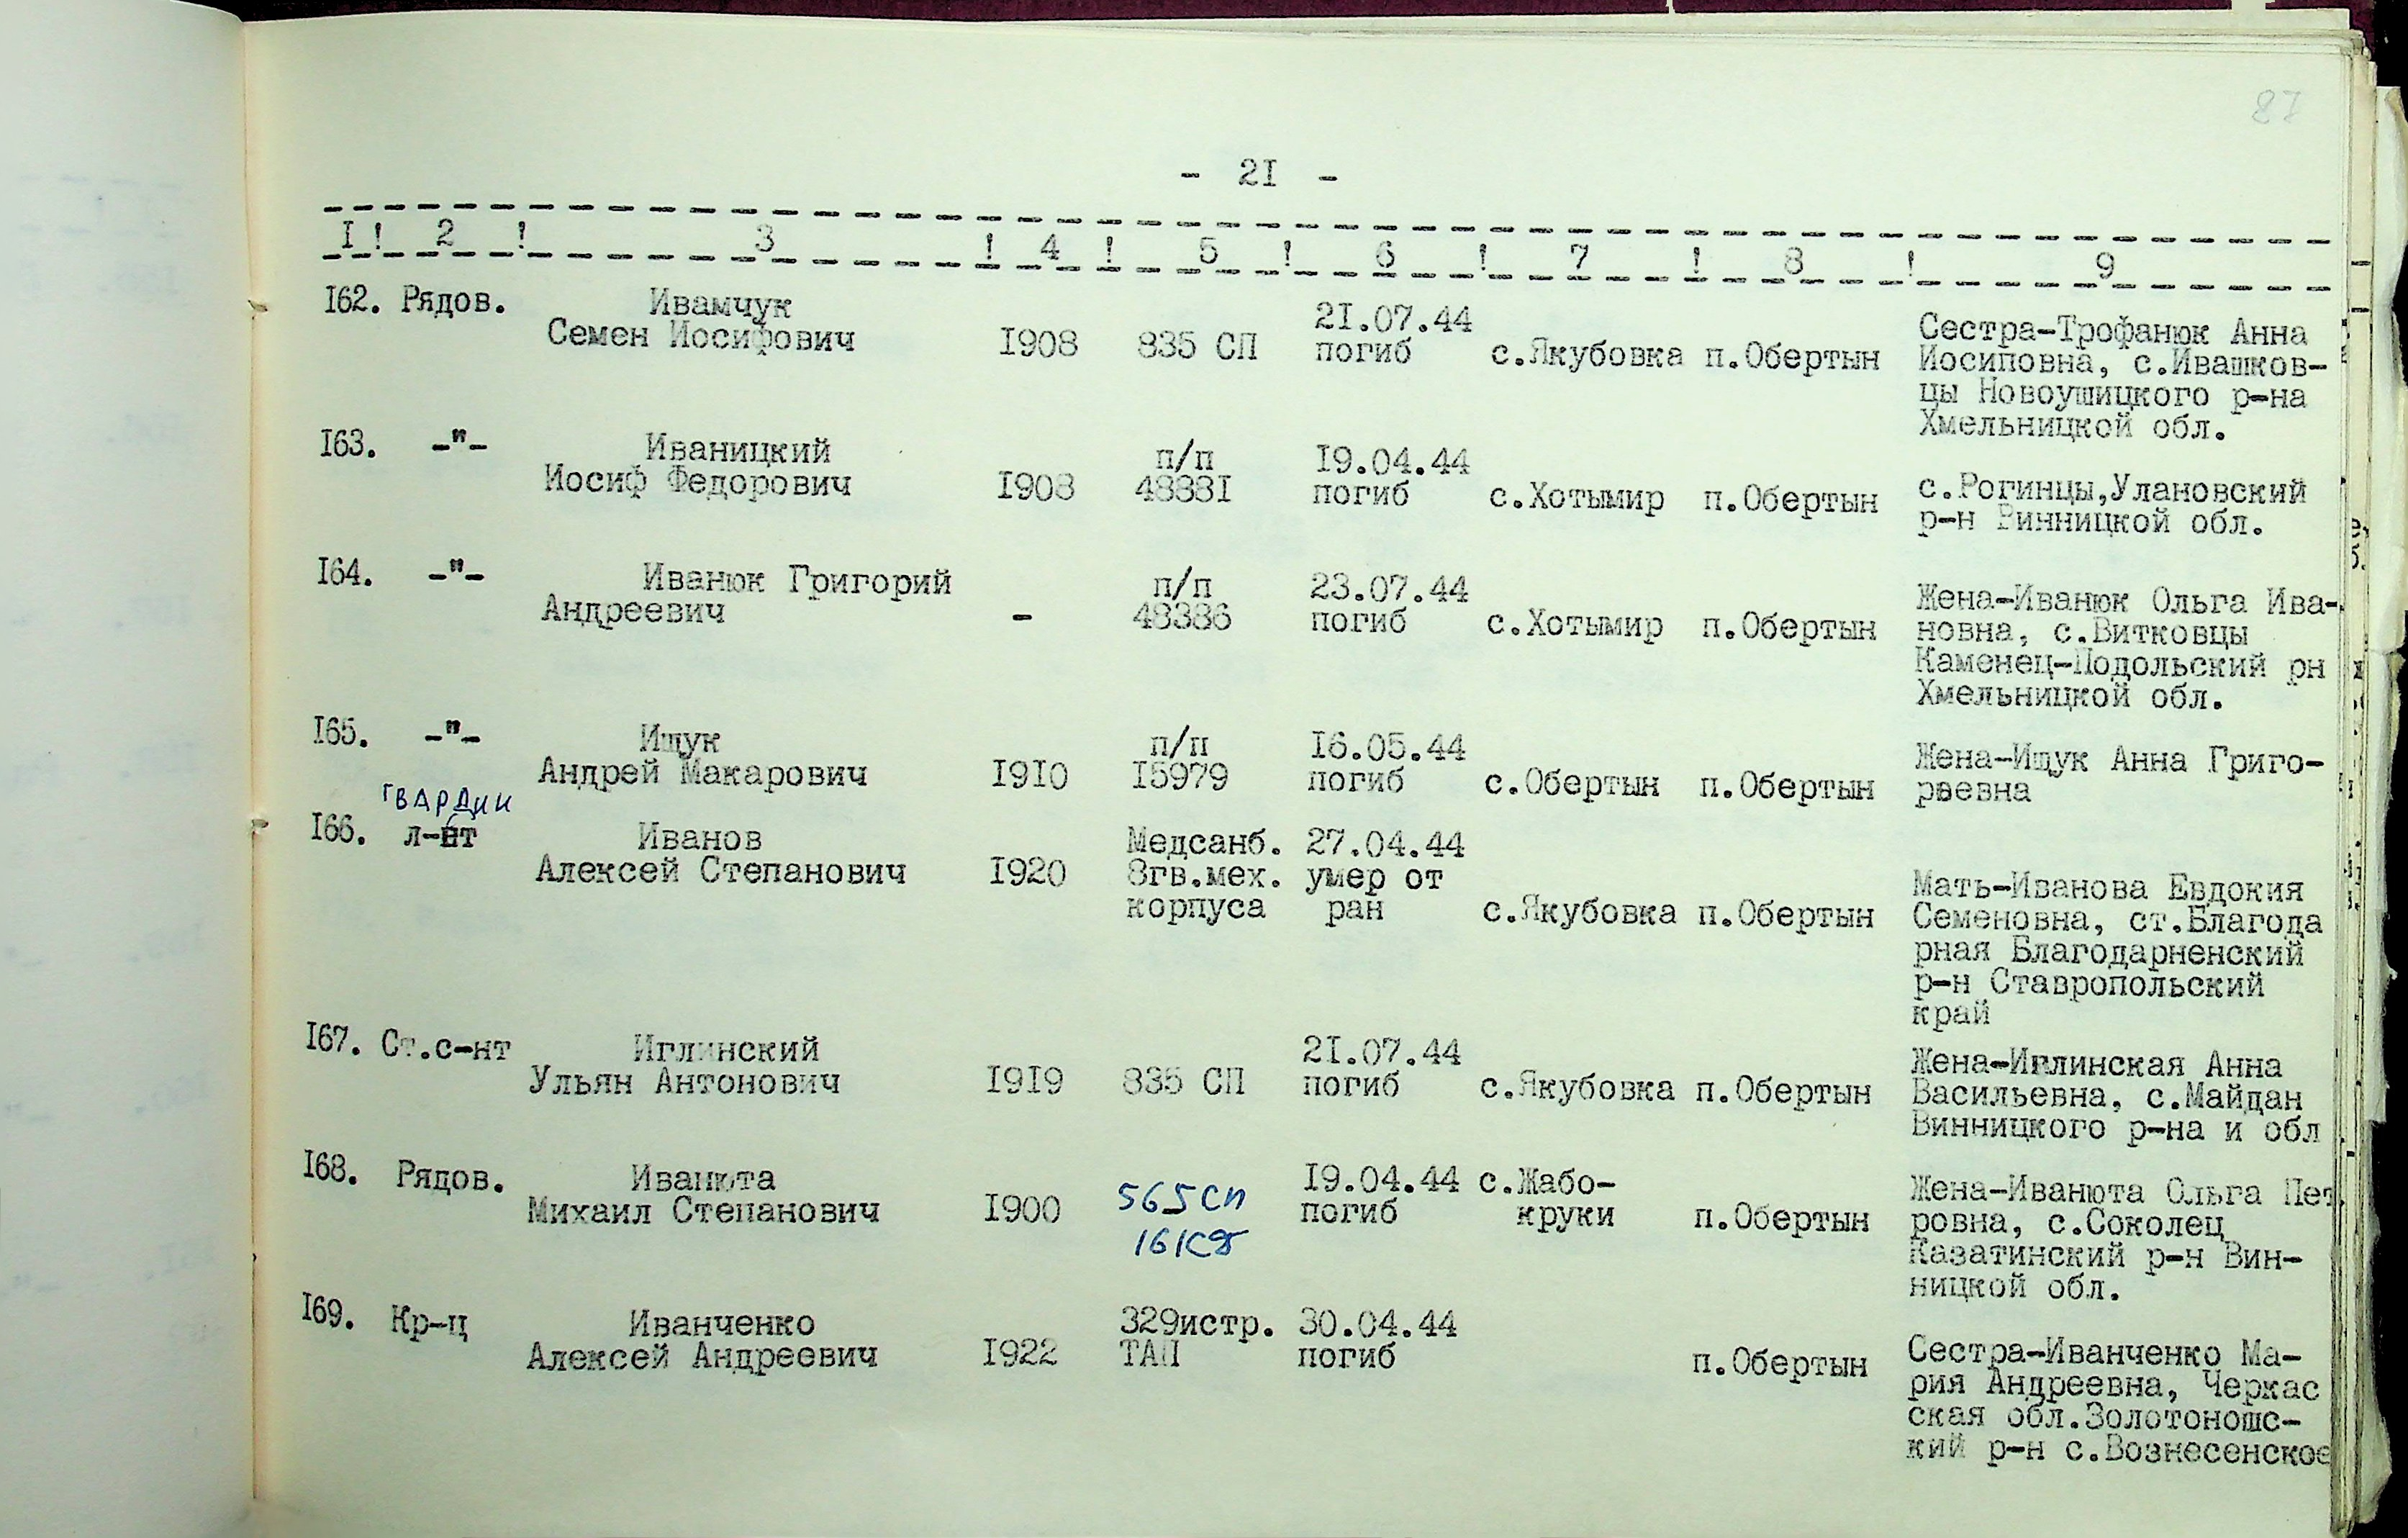 87
- 2I -
I ! 2 ! 3 ! 4 ! 5 ! 6 ! 7 ! 8 ! 9
I62. Рядов. Ивамчук
Семен Иосифович I908 835 СП 2I.07.44
погиб с.Якубовка п.Обертын Сестра-Трофанюк Анна
Иосиповна, с.Ивашков-
цы Новоушицкого р-на
Хмельницкой обл.
I63. -"- Иваницкий п/п I9.04.44
Иосиф Федорович I908 4888I погиб с.Хотымир п.Обертын с.Рогинцы,Улановский
р-н Винницкой обл.
I64. -"- Иванюк Григорий п/п 23.07.44
Андреевич - 48386 погиб с.Хотымир п.Обертын Жена-Иванюк Ольга Ива-
новна, с.Витковцы
Каменец-Подольский рн
Хмельницкой обл.
I65. -"- Ищук п/п I6.05.44
Андрей Макарович I9I0 I5979 погиб с.Обертын п.Обертын Жена-Ищук Анна Григо-
рвевна
гвардии
I66. л-нт Иванов Медсанб. 27.04.44
Алексей Степанович I920 8гв.мех. умер от
корпуса ран с.Якубовка п.Обертын Мать-Иванова Евдокия
Семеновна, ст.Благода
рная Благодарненский
р-н Ставропольский
край
I67. Ст.с-нт Иглинский 2I.07.44
Ульян Антонович I9I9 835 СП погиб с.Якубовка п.Обертын Жена-Иглинская Анна
Васильевна, с.Майдан
Винницкого р-на и обл
I68. Рядов. Иванюта 565СП I9.04.44 с.Жабо-
Михаил Степанович I900 161СД погиб круки п.Обертын Жена-Иванюта Ольга Пет
ровна, с.Соколец
Казатинский р-н Вин-
ницкой обл.
I69. Кр-ц Иванченко 329истр. 30.04.44
Алексей Андреевич I922 ТАП погиб п.Обертын Сестра-Иванченко Ма-
рия Андреевна, Черкас
ская обл.Золотоношс-
кий р-н с.Вознесенское